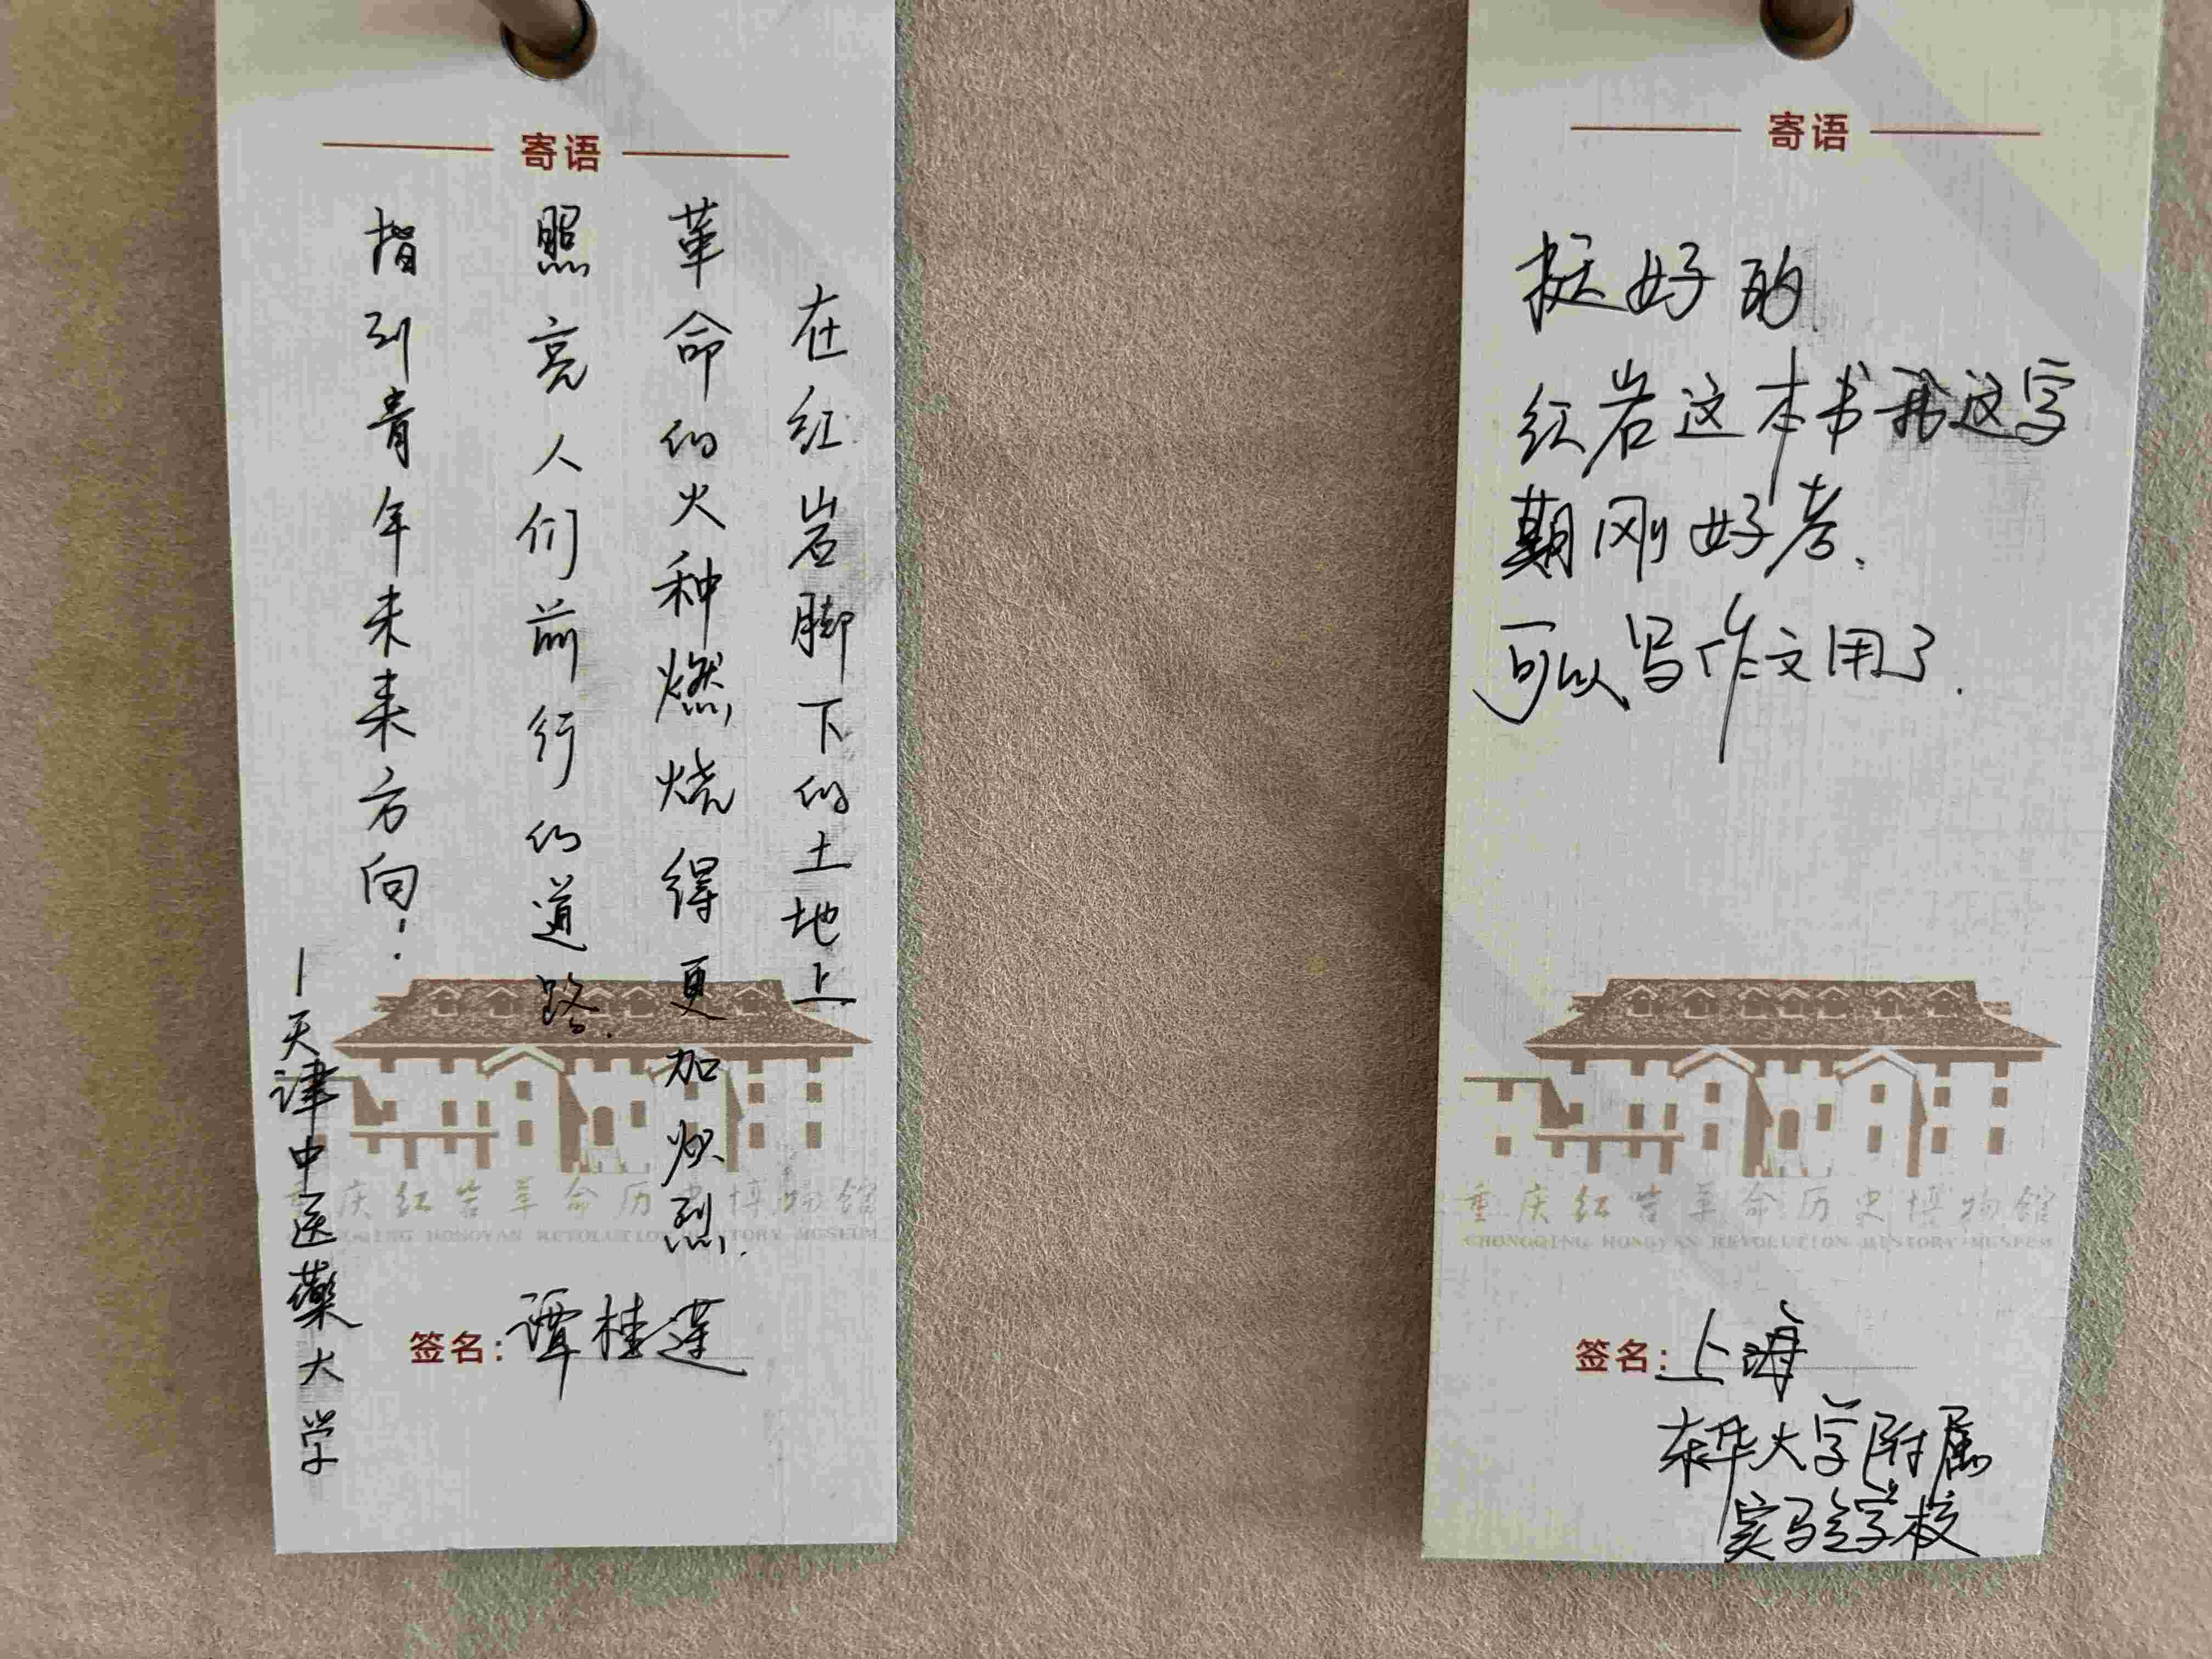 寄语
在红岩脚下的土地上
革命的火种燃烧得更加炽烈.
照亮人们前行的道路.
指引青年未来方向!
—天津中医药大学
重庆红岩革命历史博物馆
CHONGQING HONGYAN REVOLUTION HISTORY MUSEUM
签名:谭桂莲
寄语
挺好的.
红岩这本书我这学
期刚好考.
可以写作文用了.
重庆红岩革命历史博物馆
CHONGQING HONGYAN REVOLUTION HISTORY MUSEUM
签名:上海
东华大学附属
实验学校